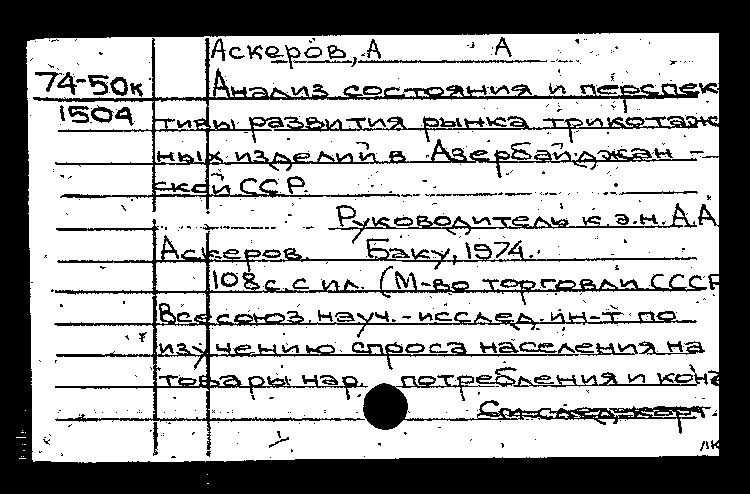 Аскеров, А А
74-50к Анализ состояния и перспек
1504 тивы развития рынка трикотаж
ных изделий в Азербайджан -
ской ССР.
Руководитель к.э.н. А.А
Аскеров. Баку, 1974.
108 с. с ил. (М-во торговли СССР
Всесоюз. науч.-исслед. ин-т по
изучению спроса населения на
товары нар. потребления и
См след. карт.